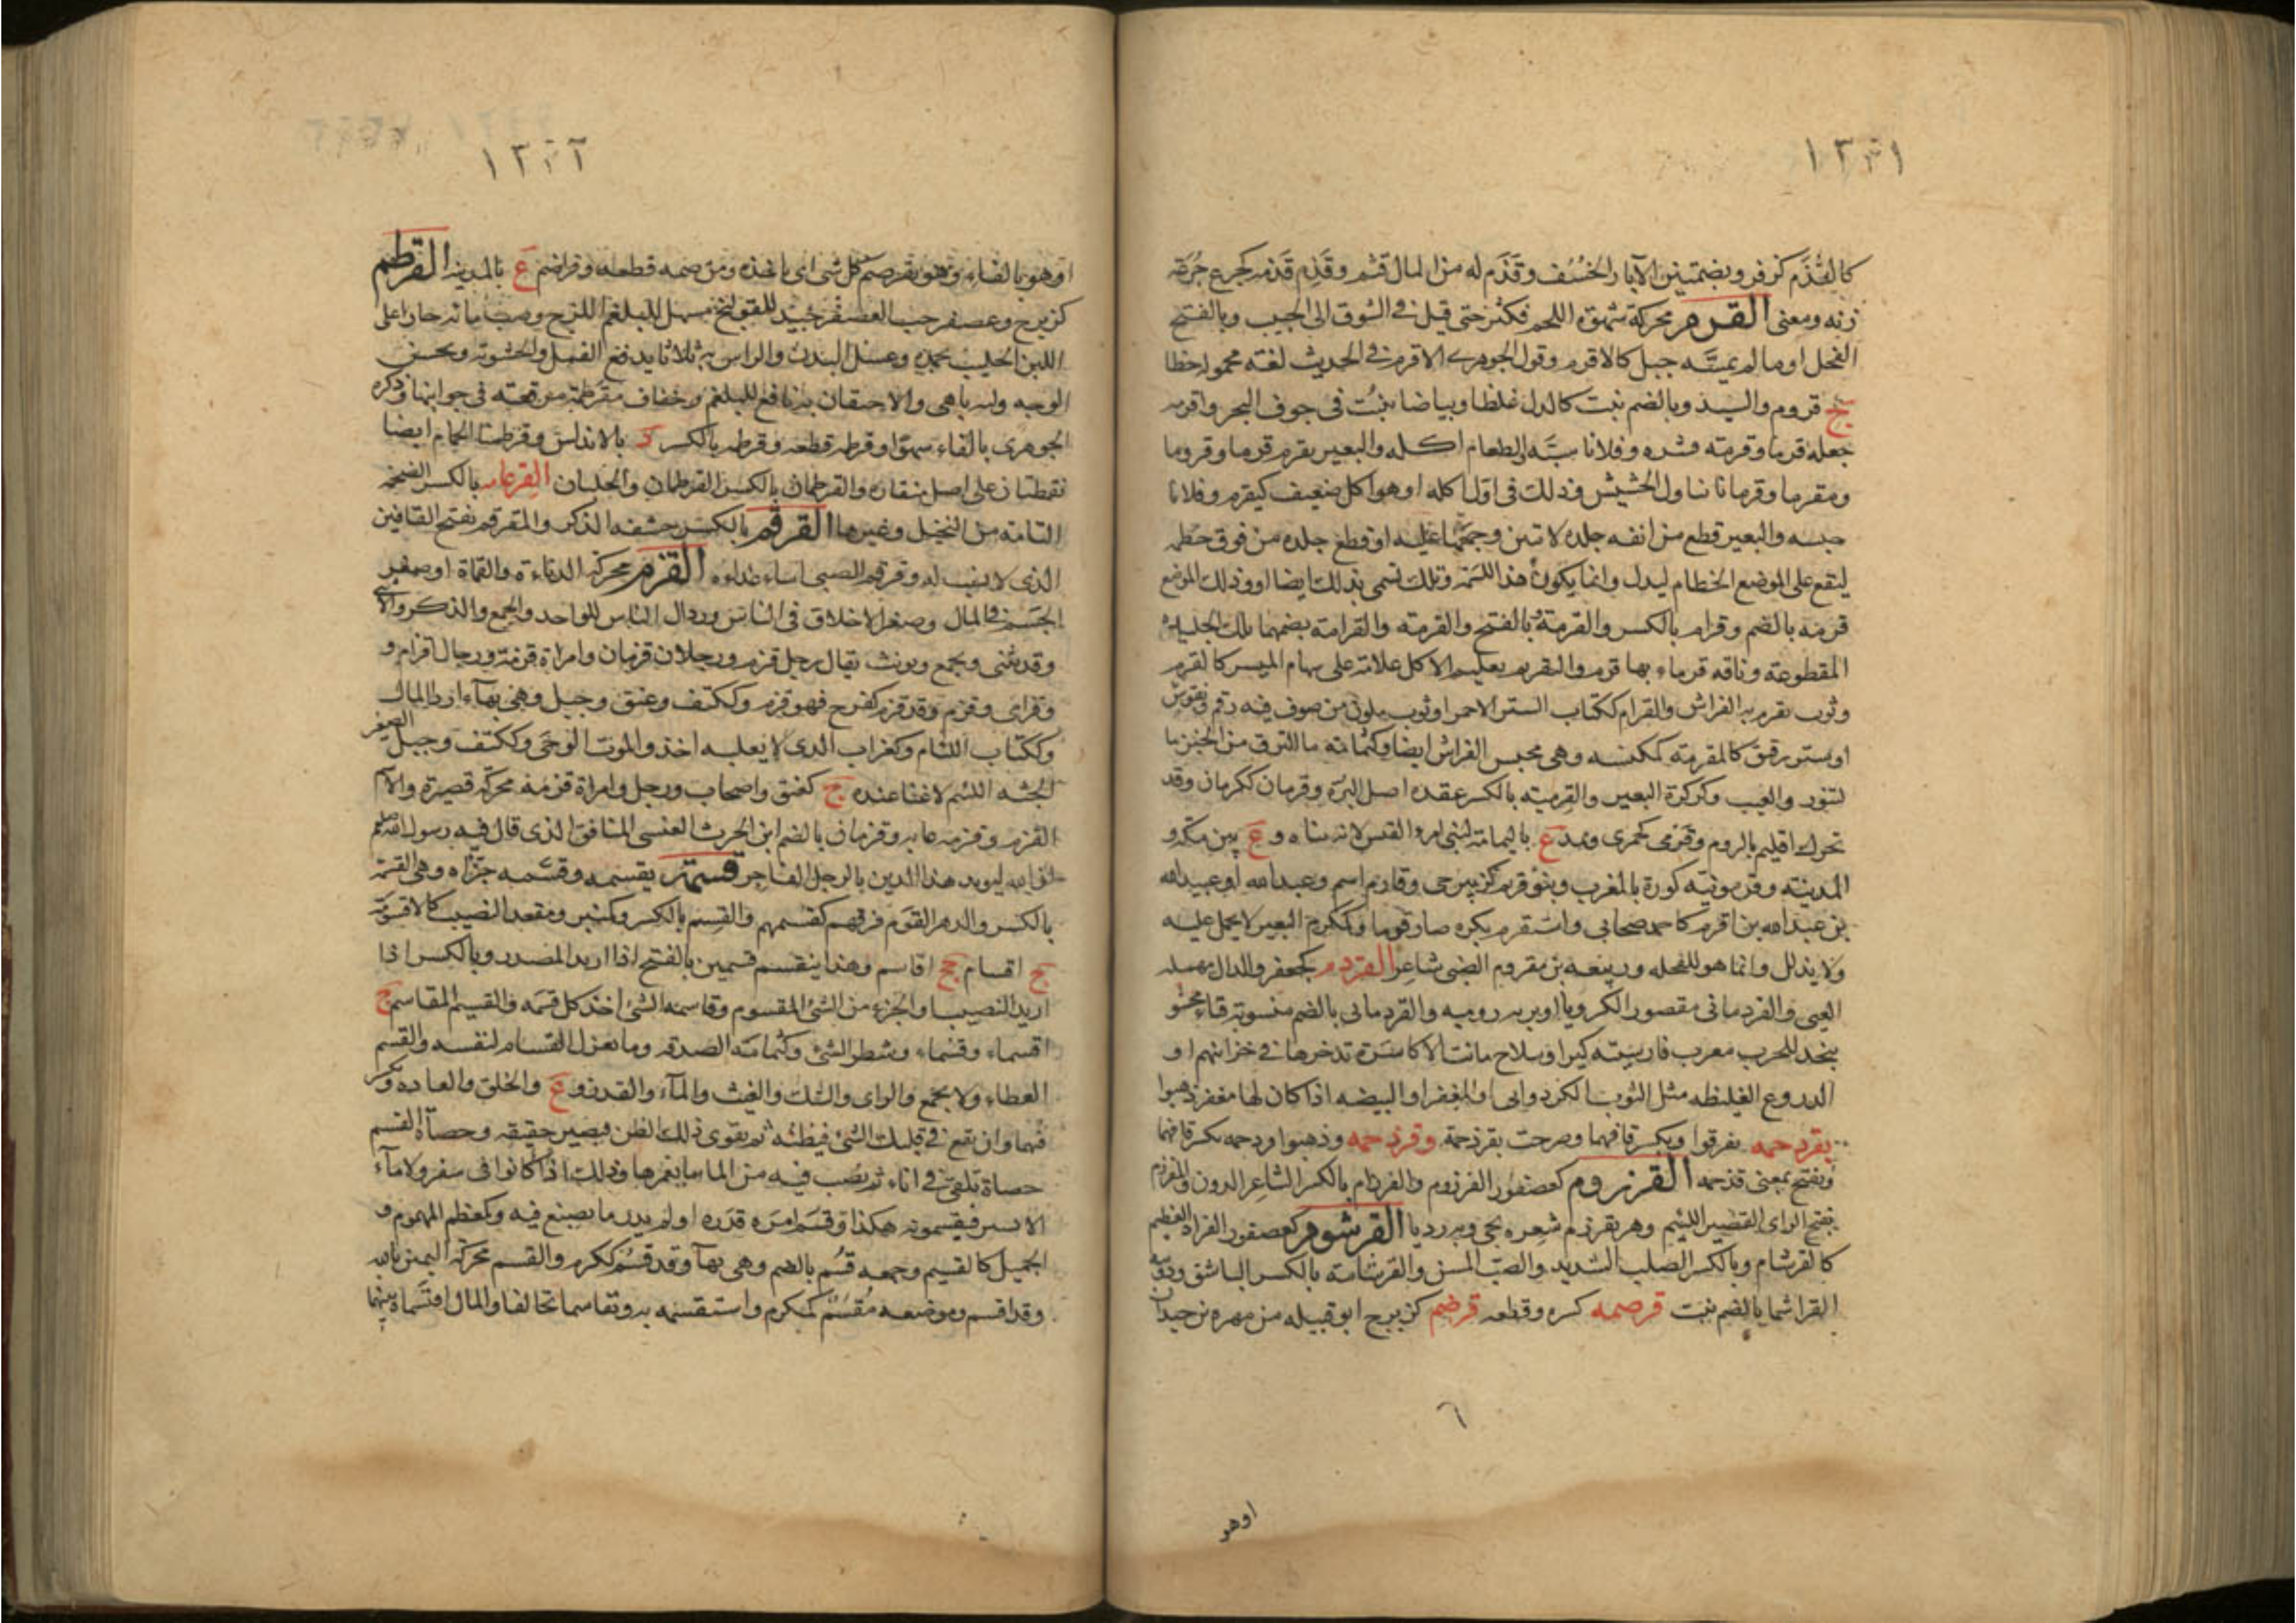 ١٣٣١
كالقُذَّم كزفر وبضمتين الآبار الخُسُف وقَذَم له من المال قثم وقَذِم قَذمة كجرع جُرعة
زنة ومعنى القرم محركة شهوة اللحم فكثر حتى قيل في الشوق الى الحبيب وبالفتح
الفحل او ما لم يمسّه حبل كالاقرم وقول الجوهرى الاقرم في الحديث لغة مجهولة خطا
ج قروم والسيد وبالضم نبت كالدلب غلظا وبياضا ينبت فى جوف البحر واقرمه
جعله قرما وقرمه قشره وفلانا سبَّه والطعام اكله والبعير يقرم قرما وقروما
ومقرما وقرمانا تناول الحشيش وذلك فى اول اكله او هو اكل ضعيف كيقرم وفلانا
حبسه والبعير قطع من انفه جلدة لا تبين وجمعها عليه او قطع جلدة من فوق خطمه
ليقع على الموضع الخطام ليذل وانما يكون هذا للسمة وتلك تسمى بذلك ايضا او وذلك الموضع
قرمة بالضم وقرام بالكسر والقرمة بالفتح والقرمة والقرامة بضمهما تلك الجليدة
المقطوعة وناقة قرماء بها قرم والتقريم تعليم الاكل علامة على سهام الميسر كالقرم
وثوب يقرم به الفراش والقرام ككتاب الستر الاحمر او ثوب ملون من صوف فيه رقم ونقوش
او ستر رقيق كالمقرمة كمكنسة وهى محبس الفراش ايضا وكثمامة ما التزق من الخبز بها
لتنور والعيب وكركرة البعير والقرمية بالكسر عقدة اصل البرة وقرمان ككرمان وقد
تحرك اقليم بالروم وقرمى كجمزى ويمد ع باليمامة لبنى امرء القيس لانه بناه و ع بين مكة و
المدينة وقرمونية كورة بالمغرب وبنو قريم كزبير حى وقارم اسم وعبد الله او عبيد الله
بن عبد الله بن اقرم كاحمد صحابى واستقرم بكره صار قرما وكمكرم البعير لا يحمل عليه
ولا يذلل وانما هو للفحلة وربيعة بن مقروم الضبى شاعر القردم كجعفر والدال مهملة
العيى والقردمانى مقصور الكرويا او برية رومية والقردمانى بالضم منسوبة قباء محشو
يتخذ للحرب معرب فارسيته كبر او سلاح كانت الاكاسرة تدخرها فى خزائنهم او
الدروع الغليظة مثل الثوب الكردوانى او المغفر او البيضة اذا كان لها مغفر ذهبوا
بقردحمه تفرقوا وبكسر قافهما وصرحت بقرذحمة وقرذحمه وذهبوا قردحمه بكسر قافها
وتفتح بمعنى قذحمه القرزوم كعصفور الفرزوم والقرزام بالكسر الشاعر الدون والمقرزم
بفتح الزاى القصير اللئيم وهو يقرزم شعره يجى به رديا القرشوم كعصفور القراد العظيم
كالقرشام وبالكسر الصلب الشديد والضب المسن والقرشامة بالكسر الباشق ودويبة
القراشما بالضم نبت قرصمه كسره وقطعه قرضم كزبرج ابو قبيلة من مهرة بن حيدان
٦
او هو
١٣٣٢
او هو بالفاء وهو يقرضم كل شى اى ياخذه وقرضمه قطعه وقراضم ع بالمدينة القرطم
كزبرج وعصفر حب العصفر جيد للقولنج مسهل للبلغم اللزج وصب مائه حارا على
اللبن الحليب يجمده وغسل البدن والراس به ثلاثا يدفع القمل والخشونة ويحسن
الوجه ولبه باهى والاحتقان به نافع للبلغم وخفاف مقرطمة مرقعة فى جوانبها وذكره
الجوهرى بالفاء سهوا وقرطمه قطعه وقرطمه بالكسر د بالاندلس وقرطمتا الحمام ايضا
نقطتان على اصل منقاره والقرطمان بالكسر القرطمان والجلبان القرعامه بالكسر الضخمة
التامة من النخيل وغيرها القرقم بالكسر حشفة الذكر والمقرقم بفتح القافين
الذى لا يشب له وقرقم الصبى اساء غذاءه القزم محركة الدناءة والقماة او صغر
الجسم فى المال وصغر الاخلاق فى الناس ورذال الناس للواحد والجمع والذكر والانثى
وقد يثنى ويجمع ويونث يقال رجل قزم ورجلان قزمان وامراة قزمة ورجال اقزام و
وقزامى وقزم وقد قزم كفرح فهو قزم وككتف وعنق وجبل وهى بهآء ارذال المال
وككتاب اللئام وكغراب الذى لا يغلبه احد والموت الوحى وككتف وجبل الصغير
الجثة اللئيم لا غنا عنده ج كعنق واصحاب ورجل وامراة قزمة محركة قصيرة والآم
القزم وقزمه عابه وقزمان بالضم ابن الحرث العبسى المنافق الذى قال فيه رسول الله صلعم
ان الله ليويد هذا الدين بالرجل الفاجر قسمه يقسمه وقسّمه جزاه وهى القسمة
بالكسر والدهر القوم فرقهم كقسمهم والقسم بالكسر وكمنبر ومقعد النصيب كالاقسومة
ج اقسام جج اقاسم وهذا ينقسم قسمين بالفتح اذا اريد المصدر وبالكسر اذا
اريد النصيب او الجزء من الشئ المقسوم وقاسمه الشئ اخذ كل قسمه والقسيم المقاسم ج
اقسماء وقسماء وشطر الشئ وكثمامة الصدقة وما يعزل القسام لنفسه والقسم
العطاء ولا يجمع والراى والشك والغيث والمآء والقدر و ع والخلق والعادة ويكسر
فيهما وان يقع فى قلبك الشئ فيظنه ثم يقوى ذلك الظن فيصير حقيقة وحصاة القسم
حصاة تلقى فى اناء ثم يصب فيه من الماء ما يغمرها وذلك اذا كانوا فى سفر ولا مآء
الا يسير فيقسمونه هكذا وقسم امره قدره او لم يدر ما يصنع فيه وكمعظم المهموم و
الجميل كالقسيم وجمعه قُسم بالضم وهى بهآ وقد قسُم ككرم والقسم محركة اليمين بالله
وقد اقسم وموضعه مُقسَم كمكرم واستقسمه به وتقاسما تحالفا والمال اقتسماه بينهما